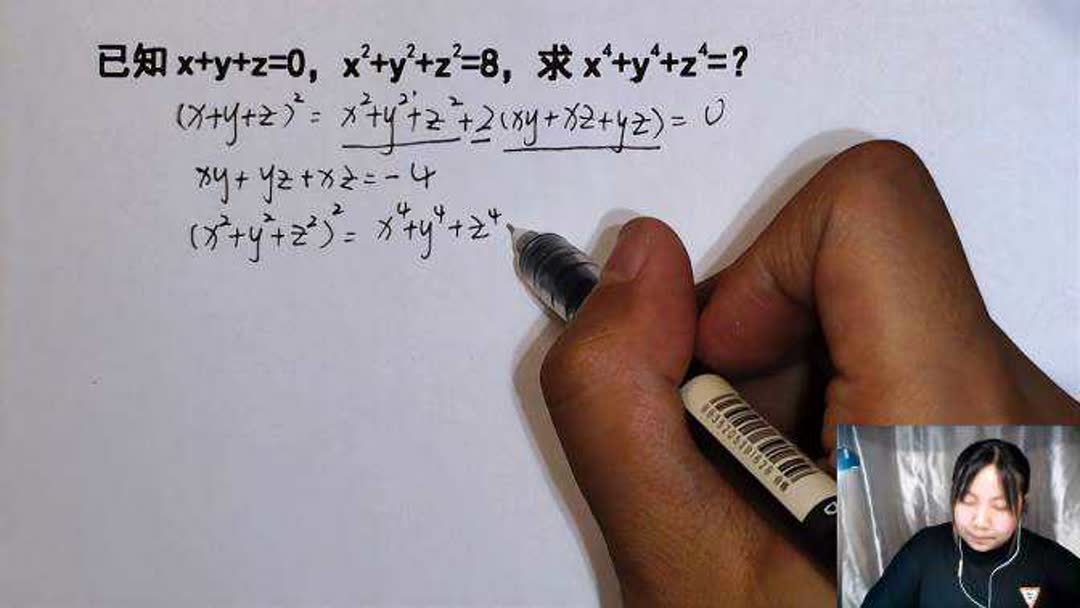 已知 x+y+z=0，x²+y²+z²=8，求 x⁴+y⁴+z⁴=？
(x+y+z)² = x²+y²+z²+2(xy+xz+yz) = 0
xy+yz+xz=-4
(x²+y²+z²)² = x⁴+y⁴+z⁴